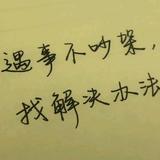 遇事不吵架，
找解决办法